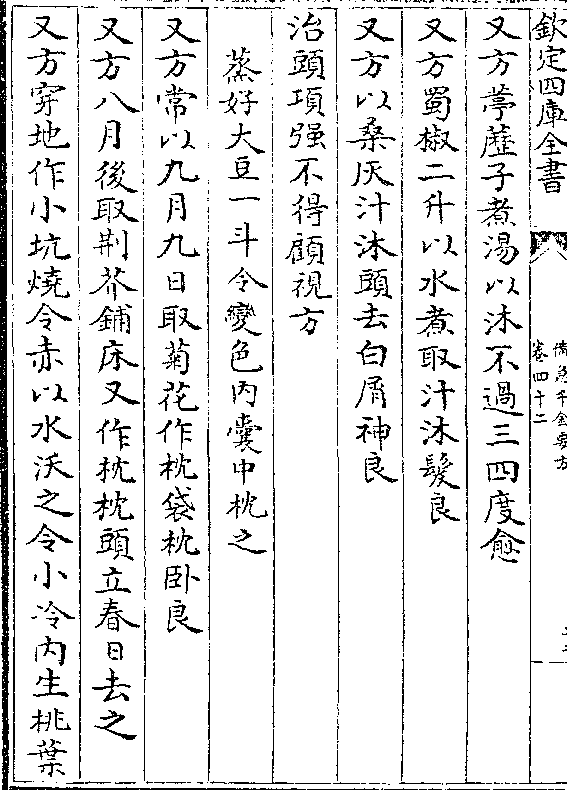 欽定四庫全書
備急千金要方
卷四十二
又方葶藶子煮湯以沐不過三四度愈
又方蜀椒二升以水煮取汁沐髮良
又方以桑灰汁沐頭去白屑神良
治頭項强不得顧視方
蒸好大豆一斗令變色内囊中枕之
又方常以九月九日取菊花作枕袋枕卧良
又方八月後取荆芥鋪床又作枕枕頭立春日去之
又方穿地作小坑燒令赤以水沃之令小冷内生桃葉